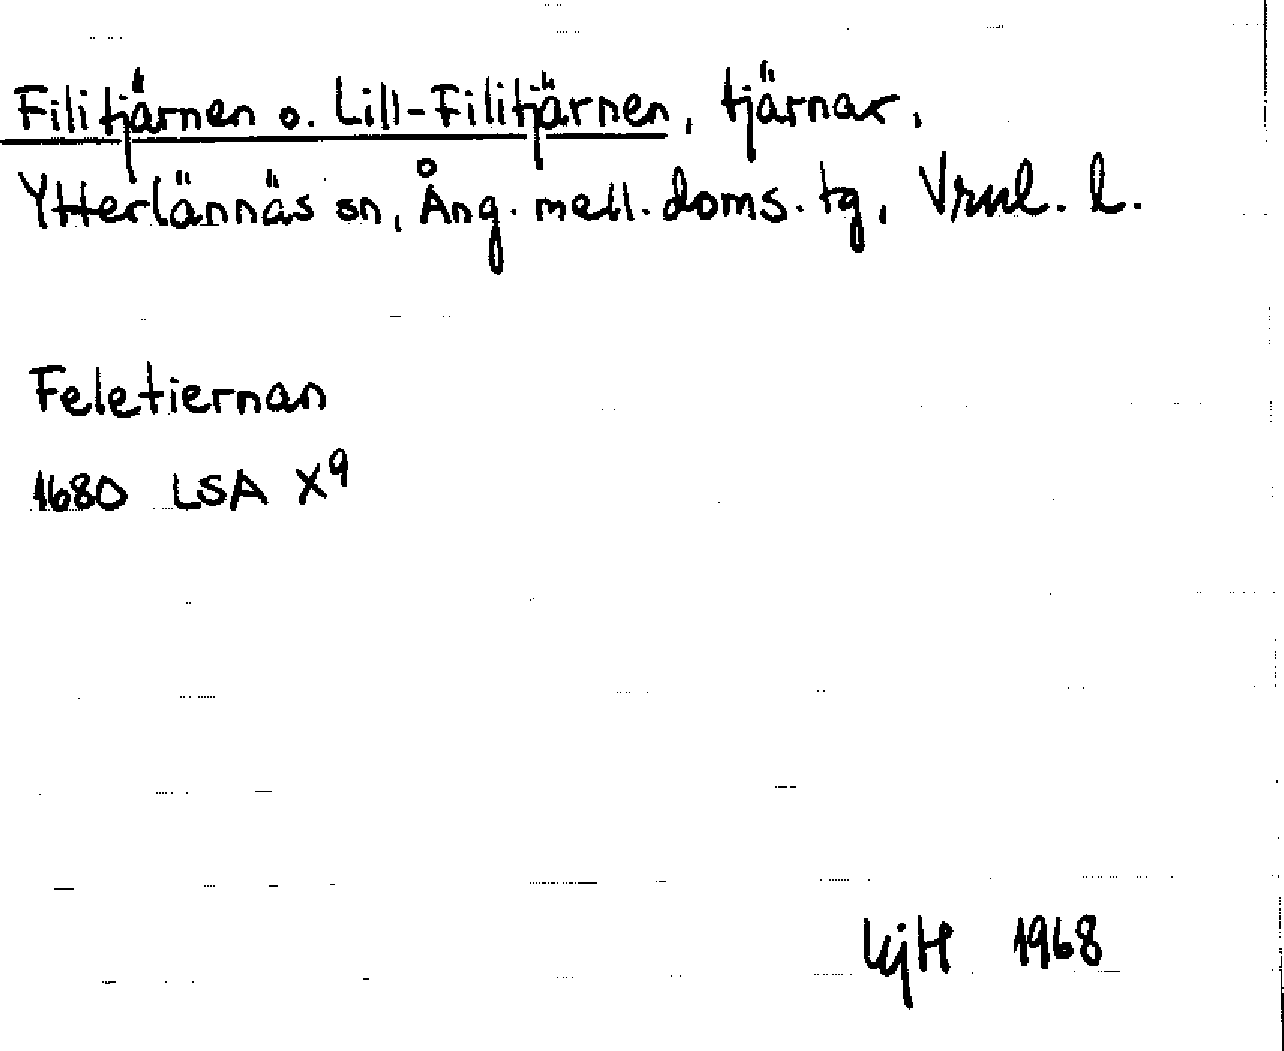 Filitjärnen o. Lill-Filitjärnen, tjärnar,
Ytterlännäs sn, Ång. mell. doms. tg, Vrnl. l.
Feletiernan
1680 LSA X9
1968